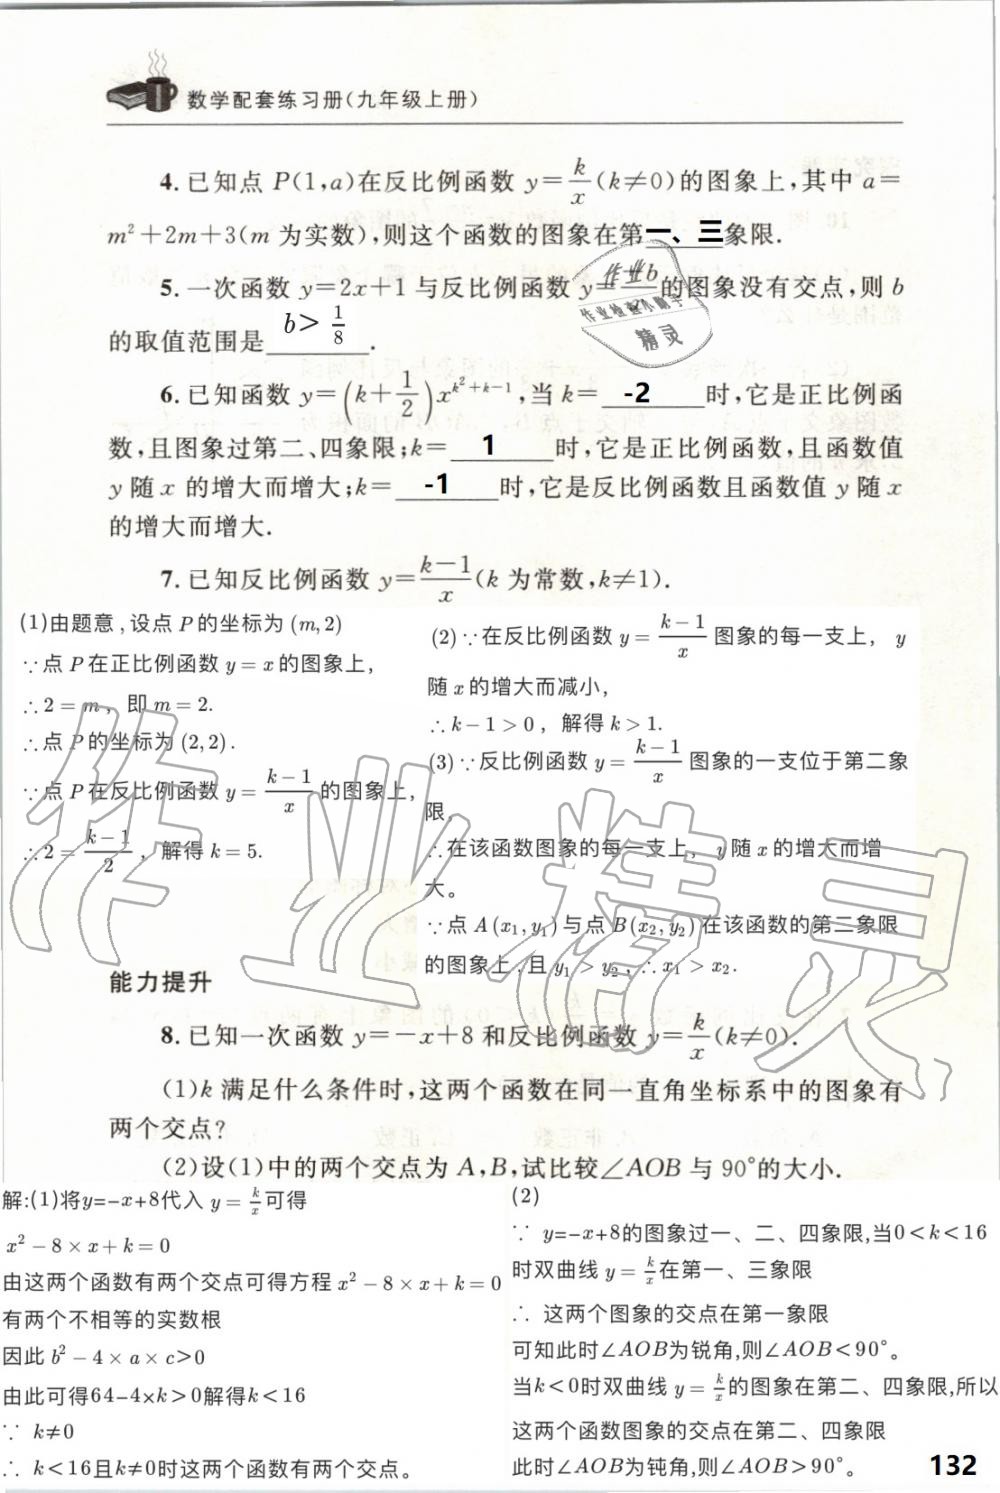 数学配套练习册(九年级上册)
4.已知点 P(1,a)在反比例函数 y=k/x(k≠0)的图象上,其中 a=
m²+2m+3(m 为实数),则这个函数的图象在第一、三象限.
5.一次函数 y=2x+1 与反比例函数 y 的图象没有交点,则 b
的取值范围是 b>1/8.
6.已知函数 y=(k+1/2)x^(k²+k-1),当 k= -2 时,它是正比例函
数,且图象过第二、四象限;k= 1 时,它是正比例函数,且函数值
y 随 x 的增大而增大;k= -1 时,它是反比例函数且函数值 y 随 x
的增大而增大.
7.已知反比例函数 y=(k-1)/x(k 为常数,k≠1).
(1)由题意,设点 P 的坐标为 (m,2)
∵点 P 在正比例函数 y=x 的图象上,
∴2=m, 即 m=2.
∴点 P 的坐标为 (2,2).
∵点 P 在反比例函数 y=(k-1)/x 的图象上,
∴2=(k-1)/2, 解得 k=5.
(2)∵在反比例函数 y=(k-1)/x 图象的每一支上, y
随 x 的增大而减小,
∴k-1>0, 解得 k>1.
(3)∵反比例函数 y=(k-1)/x 图象的一支位于第二象
限,
∴在该函数图象的每一支上, y 随 x 的增大而增
大。
∵点 A(x₁,y₁) 与点 B(x₂,y₂) 在该函数的第二象限
的图象上,且 y₁>y₂, ∴x₁>x₂.
能力提升
8.已知一次函数 y=-x+8 和反比例函数 y=k/x(k≠0).
(1)k 满足什么条件时,这两个函数在同一直角坐标系中的图象有
两个交点?
(2)设(1)中的两个交点为 A,B,试比较∠AOB 与 90°的大小.
解:(1)将y=-x+8代入 y=k/x 可得
x²-8×x+k=0
由这两个函数有两个交点可得方程 x²-8×x+k=0
有两个不相等的实数根
因此 b²-4×a×c>0
由此可得64-4×k>0解得k<16
∵ k≠0
∴ k<16且k≠0时这两个函数有两个交点。
(2)
∵ y=-x+8的图象过一、二、四象限,当0<k<16
时双曲线 y=k/x 在第一、三象限
∴ 这两个图象的交点在第一象限
可知此时∠AOB为锐角,则∠AOB<90°。
当k<0时双曲线 y=k/x 的图象在第二、四象限,所以
这两个函数图象的交点在第二、四象限
此时∠AOB为钝角,则∠AOB>90°。
132
作业精灵
作业b
作业检查小助手
精灵